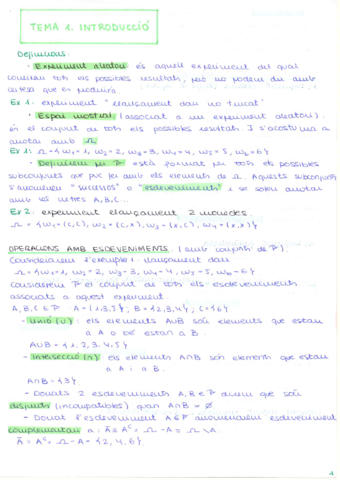 TEMA 1. INTRODUCCIÓ
Definicions:
· Experiment aleatori és aquell experiment del qual
coneixen tots els possibles resultats, però no podem dir amb
certesa que es produirà.
Ex 1: experiment "llançament dau no trucat"
· Espai mostral (associat a un experiment aleatori):
és el conjunt de tots els possibles resultats. I s'acostuma a
anotar amb Ω
Ex 1: Ω = {w₁ = 1, w₂ = 2, w₃ = 3, w₄ = 4, w₅ = 5, w₆ = 6}
· Definirem per P està format per tots els possibles
subconjunts que puc fer amb els elements de Ω. Aquests subconjunts
s'anomenen "successos" o "esdeveniments" i se solen anotar
amb les lletres A, B, C...
Ex 2: experiment llançament 2 monedes.
Ω = {w₁ = (c,c), w₂ = (c,x), w₃ = (x,c), w₄ = (x,x)}
OPERACIONS AMB ESDEVENIMENTS (amb conjunts de P).
Considerem l'exemple 1. llançament dau
Ω = {w₁ = 1, w₂ = 2, w₃ = 3, w₄ = 4, w₅ = 5, w₆ = 6}
considerem P el conjunt de tots els esdeveniments
associats a aquest experiment.
A, B, C ∈ P A = {1,3,5}; B = {2,3,4}; C = {6}
- Unió (∪): els elements A∪B són elements que estan
a A o bé estan a B.
A∪B = {1, 2, 3, 4, 5}
- Intersecció (∩): els elements A∩B són elements que estan
a A i a B.
A∩B = {3}
- Donats 2 esdeveniments A, B ∈ P direm que són
disjunts (incompatibles) quan A∩B = ∅
- Donat l'esdeveniment A ∈ P anomenarem esdeveniment
complementari a: Ā = Aᶜ = Ω - A = Ω \ A
Ā = Aᶜ = Ω - A = {2, 4, 6}
1